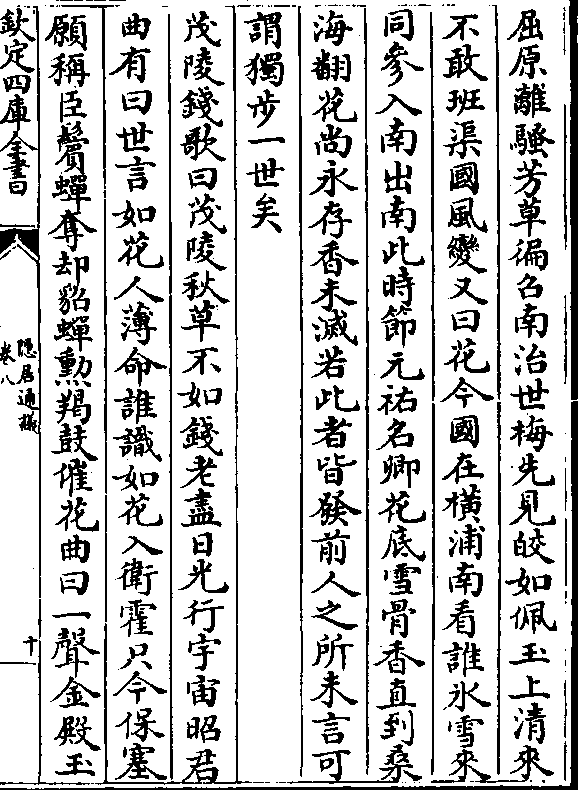 屈原離騷芳草徧召南治世梅先見皎如佩玉上清來
不敢班渠國風變又曰花今國在橫浦南看誰氷雪來
同參入南出南此時節元祐名卿花底雪骨香直到桑
海翻花尚永存香未滅若此者皆發前人之所未言可
謂獨步一世矣
茂陵錢歌曰茂陵秋草不如錢老盡日光行宇宙昭君
曲有曰世言如花人薄命誰識如花入衛霍只今保塞
願稱臣鬢蟬奪却貂蟬勲羯鼓催花曲曰一聲金殿玉
欽定四庫全書
隠居通議
卷八
十